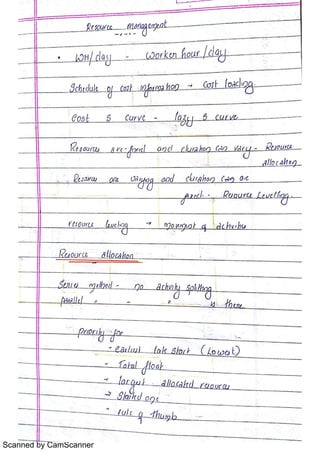 Resource Management
• WH/day - worker hour/day
Schedule of cost information → cost loading
cost S curve - lazy S curve
Resources are fixed and duration can vary - Resource
allocation
Resources are varying and duration can be
fixed - Resource Levelling.
resource leveling → movement of activities
Resource allocation
Series method - no activity splitting
parallel " - " is there
priority for
- earliest late start (Lowest)
- Total float
- largest allocated resources
→ Started one
- rule of thumb
Scanned by CamScanner